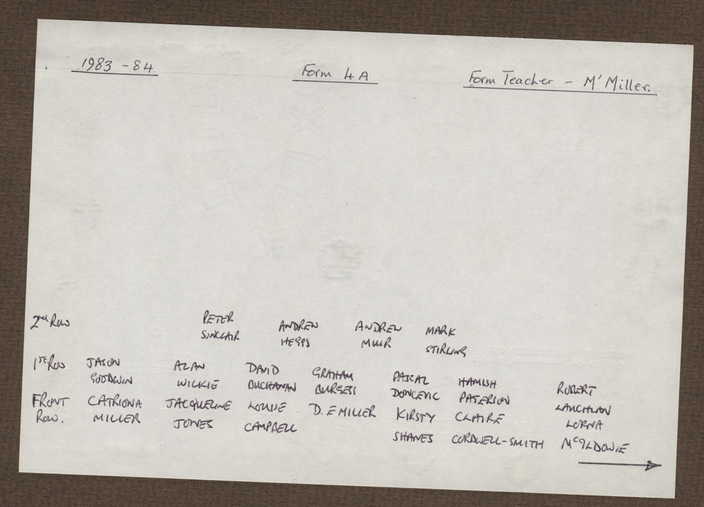 1983 - 84 Form 4A Form Teacher - Mr Miller.
2nd Row PETER ANDREW ANDREW MARK
SINCLAIR MUIR STIRLING
1st Row JASON ALAN DAVID GRAHAM PASCAL HAMISH ROBERT
GOODWIN WILKIE BUCHANAN BURGESS DONCEVIC PATERSON LAUCHLAN
FRONT CATRIONA JACQUELINE LOUISE D. E MILLER KIRSTY CLAIRE LORNA
Row. MILLER JONES CAMPBELL SHANES CORDWELL-SMITH McILDOWIE